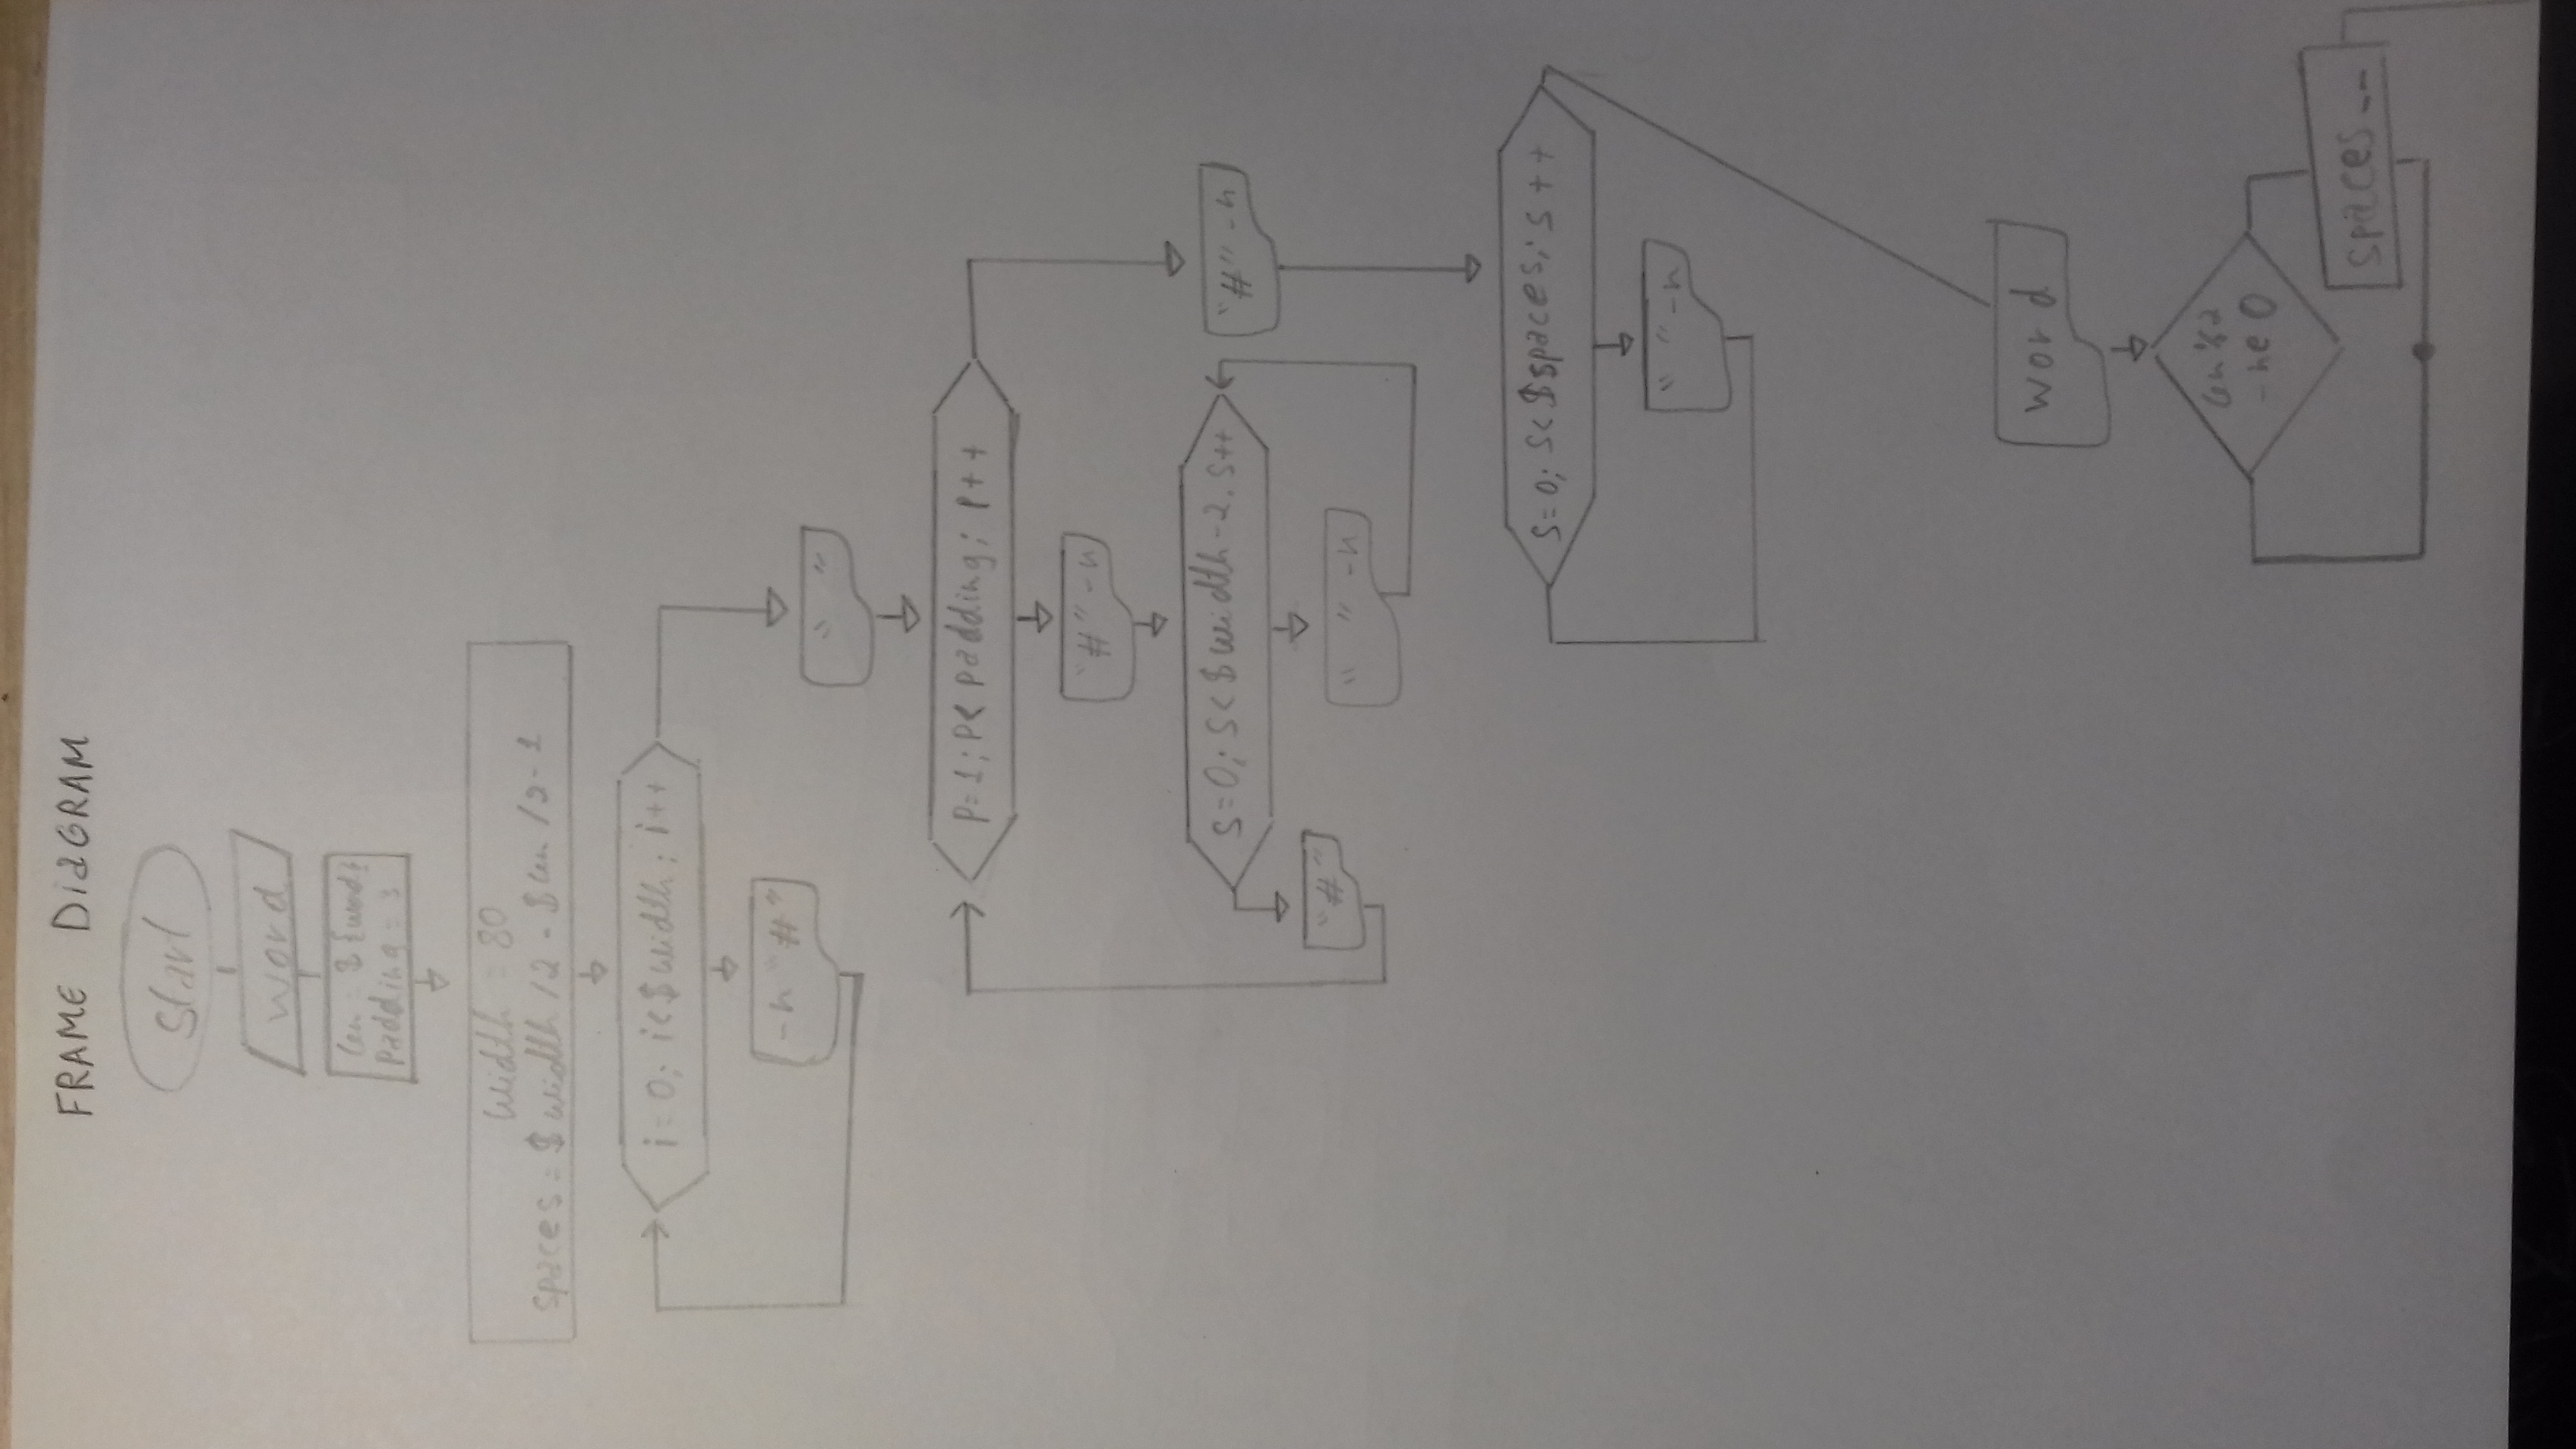 FRAME DiaGRAM
Start
word
len = $ {word}
Padding = 3
width = 80
spaces = $ width / 2 - $ len / 2 - 1
i = 0; i < $ width; i++
-n "#"
" "
P=1; P< padding; P++
"#" -n
s=0; s < $ width - 2. s++
"#" -n
"#"
" " -n
s=0; s< $spaces; s ++
" " -n
word
len % 2
-ne 0
spaces --